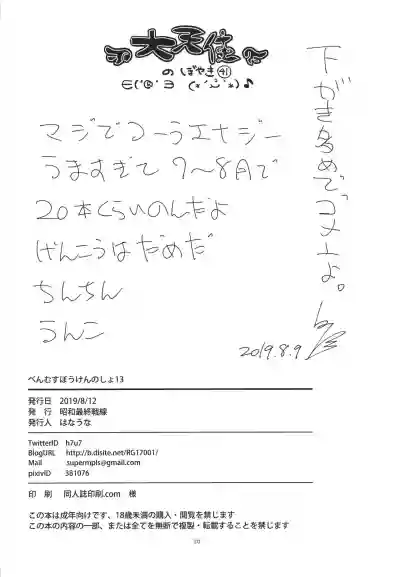 大天使
のぼやき㊶
マジでつーうエナジー
うますぎて 7〜8月で
20本くらいのんだよ
げんこうはだめだ
ちんちん
うんこ
下がき多めでゴメンよ。
2019.8.9
べんむすぼうけんのしょ13
発行日 2019/8/12
発 行 昭和最終戦線
発行人 はなうな
TwitterID h7u7
BlogURL http://b.dlsite.net/RG17001/
Mail supermpls@gmail.com
pixivID 381076
印 刷 同人誌印刷.com 様
この本は成年向けです、18歳未満の購入・閲覧を禁じます
この本の内容の一部、または全てを無断で複製・転載することを禁じます
20